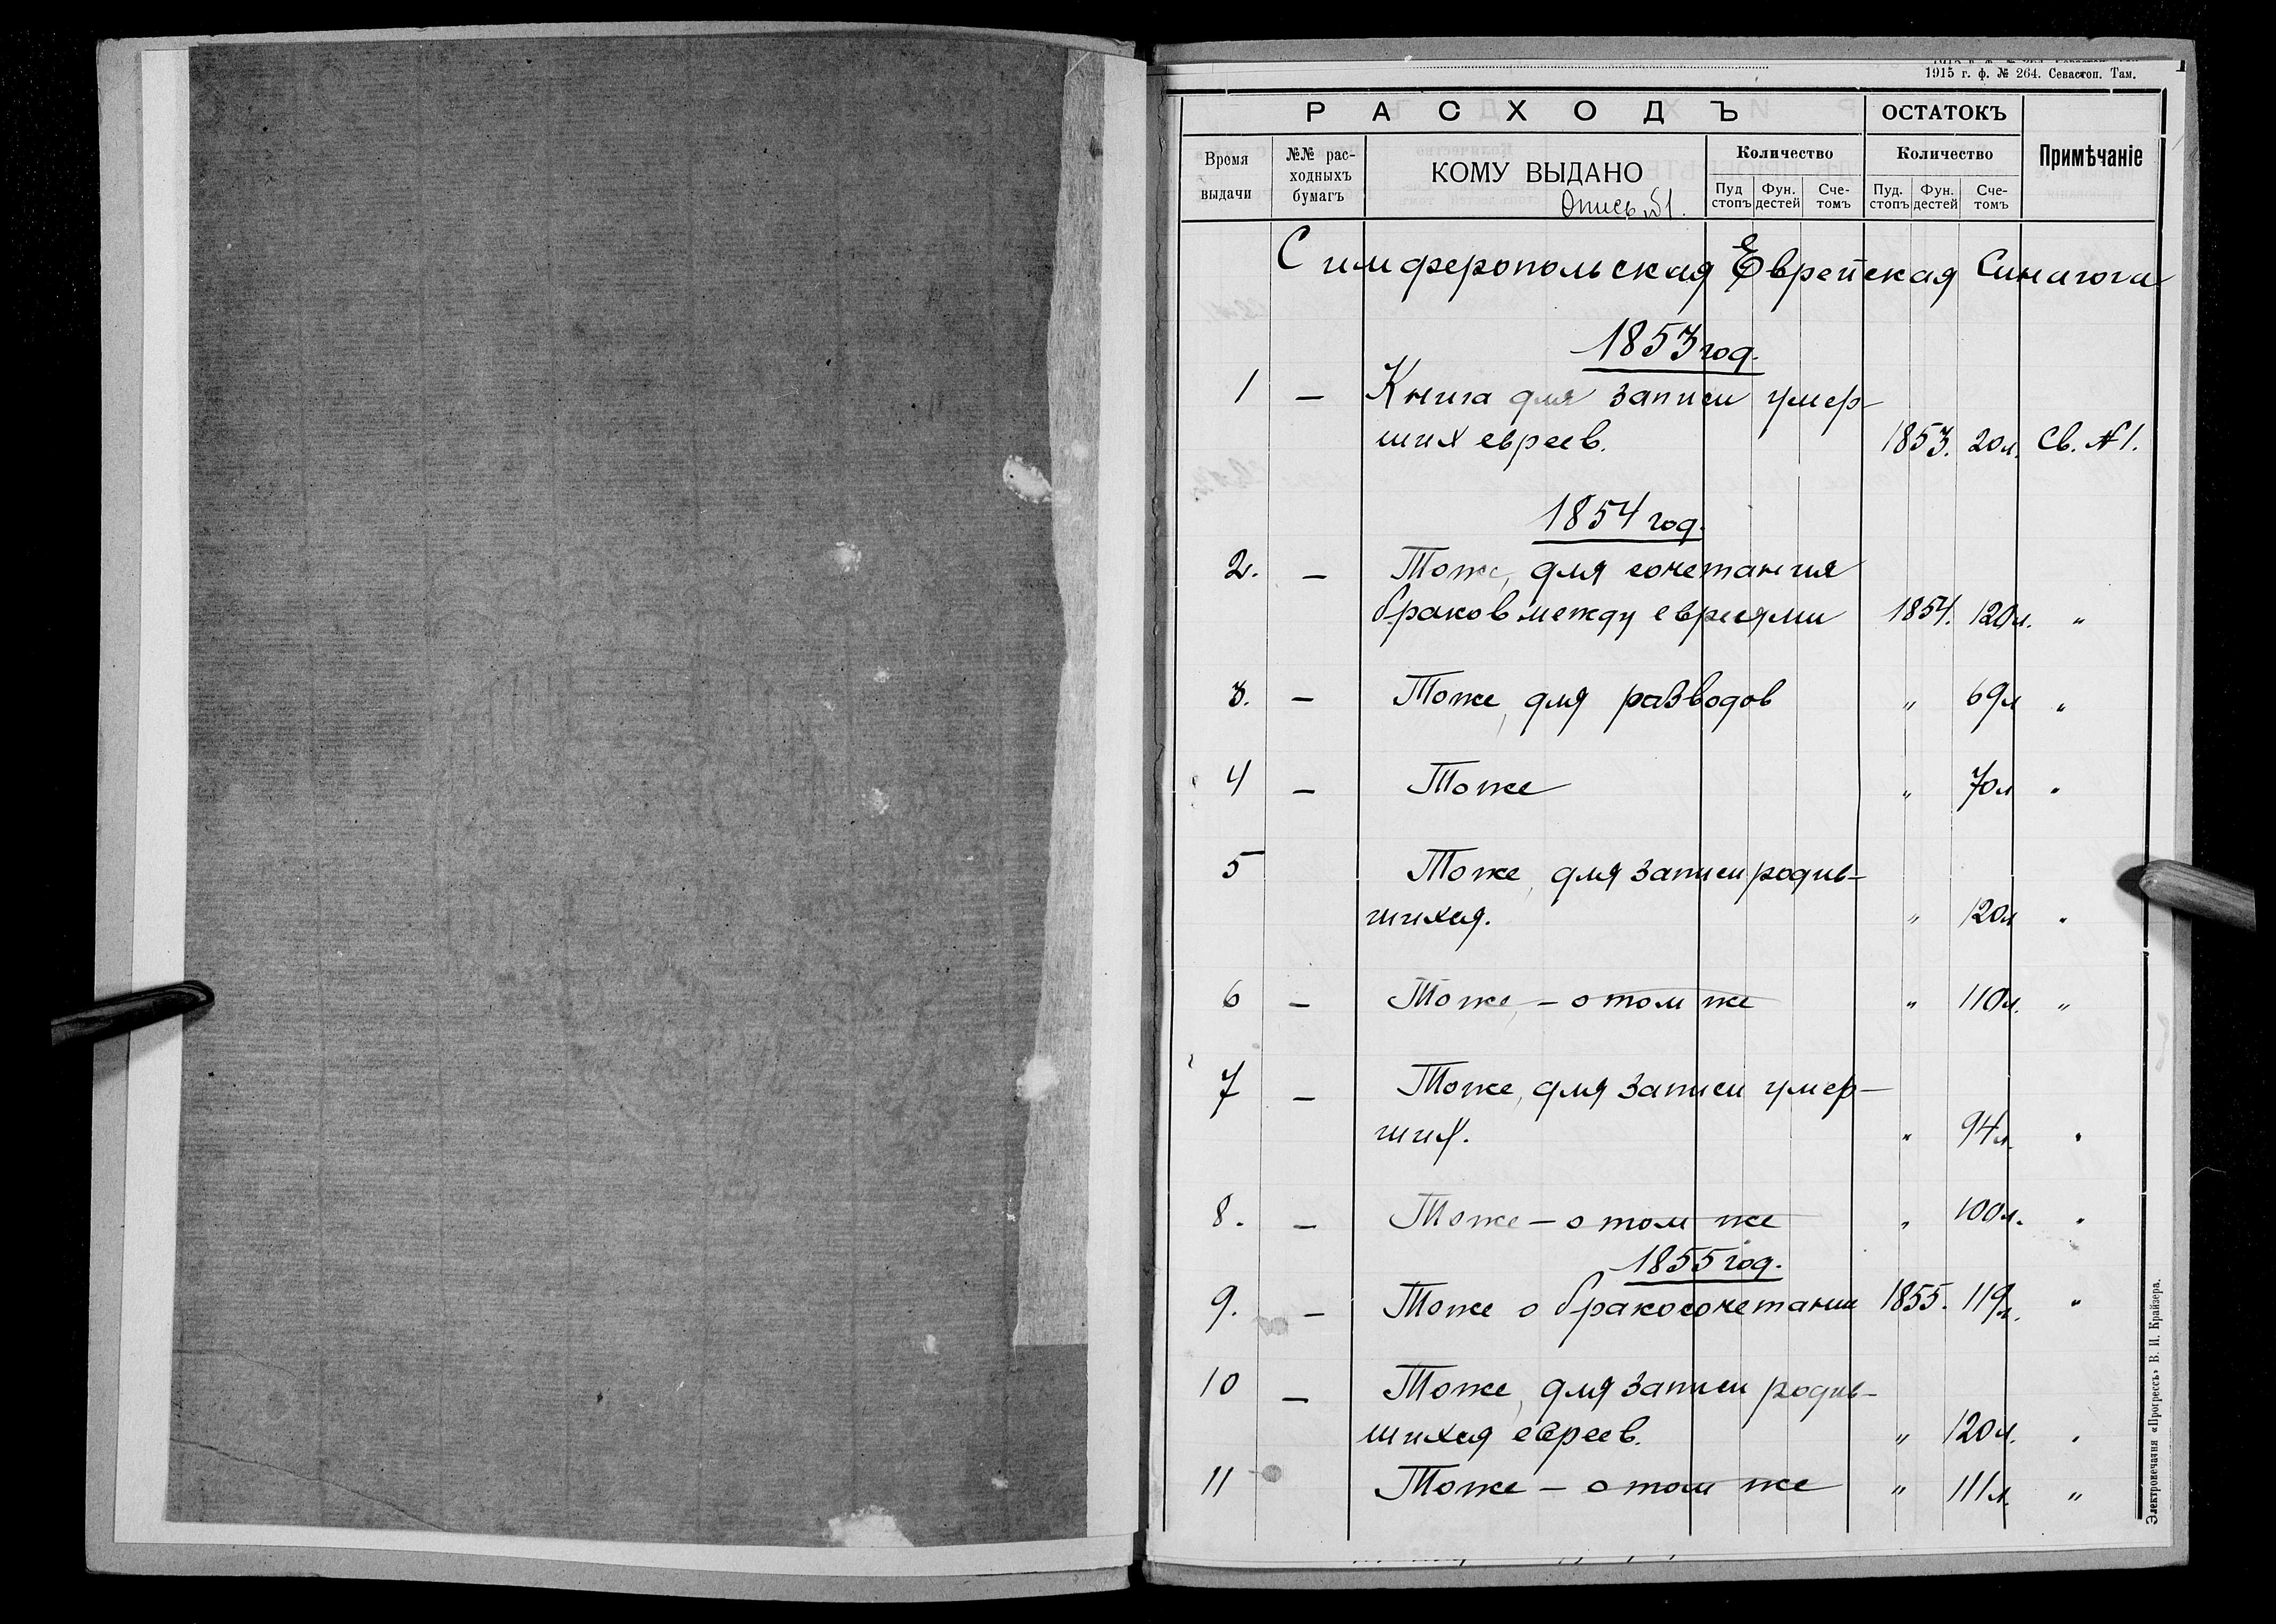 1915 г. ф. № 264. Севастоп. Там.
РАСХОДЪ ОСТАТОКЪ Примѣчаніе
Время выдачи №№ расходныхъ бумагъ КОМУ ВЫДАНО Количество Количество
Пуд стопъ Фун. дестей Сче-томъ Пуд. стопъ Фун. дестей Сче-томъ
Опись №1.
Симферопольская Еврейская Синагога
1853 год.
1 — Книга для записи умер-
ших евреев. 1853. 20л. Св. №1.
1854 год.
2. — Тоже, для сочетания
браков между евреями 1854. 120л. "
3. — Тоже, для разводов " 69л "
4 — Тоже " 70л "
5 Тоже, для записи родив-
шихся. " 120л "
6 — Тоже, – о том же " 110л. "
7 — Тоже, для записи умер-
ших. " 94л. "
8. — Тоже – о том же " 100л. "
1855 год.
9. — Тоже о бракосочетании 1855. 119л. "
10 — Тоже, для записи родив-
шихся евреев. " 120л. "
11 Тоже – о том же " 111л. "
Электропечатня «Прогрессъ» В. И. Крайзера.